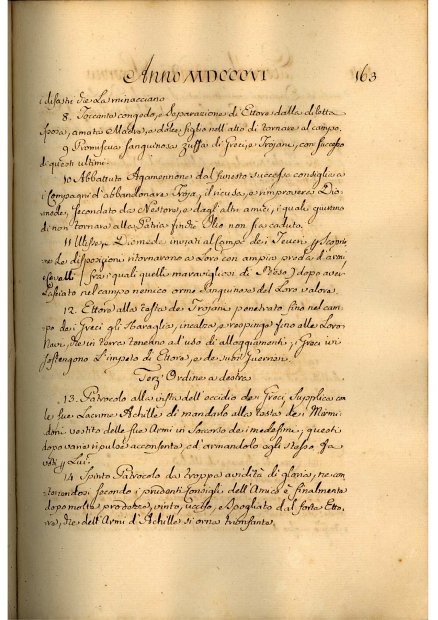 Anno MDCCCVI 163
i disastri che La minacciano
8. Toccante congedo, e Separazione di Ettore dalla diletta
Sposa, amata Madre, e dolce figlio nell'atto di tornare al campo.
9 Promiscua sanguinosa zuffa di Greci, e Trojani, con successo
di questi ultimi.
10. Abbattuto Agamennone dal funesto successo consiglia a
i Compagni d'abbandonare Troja, il ricusa, e rimprovera Dio-
mede, secondato da Nestore, e dagli altri amici, i quali giurano
di non tornare alla Patria finchè Ilio non sia caduta.
11 Ulisse, e Diomede inviati al Campo dei Teucri per iscoprir-
ne Le disposizioni ritornarono a Loro con ampia preda d'armi,
e cavalli (fra i quali quelle maravigliosi di Reso) dopo aver
Lasciato nel campo nemico orme sanguinose del Loro valore.
12. Ettore alla testa dei Trojani penetrato fino nel cam-
po dei Greci gli sbaraglia, incalza, e respinge fino alle Loro
Navi, che in terra tenevano ad uso di alloggiamenti; i Greci ivi
sostengono L'impeto di Ettore, e de suoi Guerrieri.
Terz'Ordine a destra
13. Patrocolo alla vista dell'eccidio dei Greci, Supplica con
le sue Lacrime Achille di mandarlo alla testa dei Mirmi-
doni vestito delle sue Armi in Soccorso dei medesimi; questi
dopo varie ripulse acconsente, ed armandolo egli stesso, fa
voti per Lui.
14. Spinto Patrocolo da troppa avidità di gloria, ne con-
tenendosi secondo i prudenti Consigli dell'Amico è finalmente
dopo molte prodezze, vinto, ucciso, e spogliato dal forte Etto-
re, che dell'Armi d'Achille si orna trionfante.